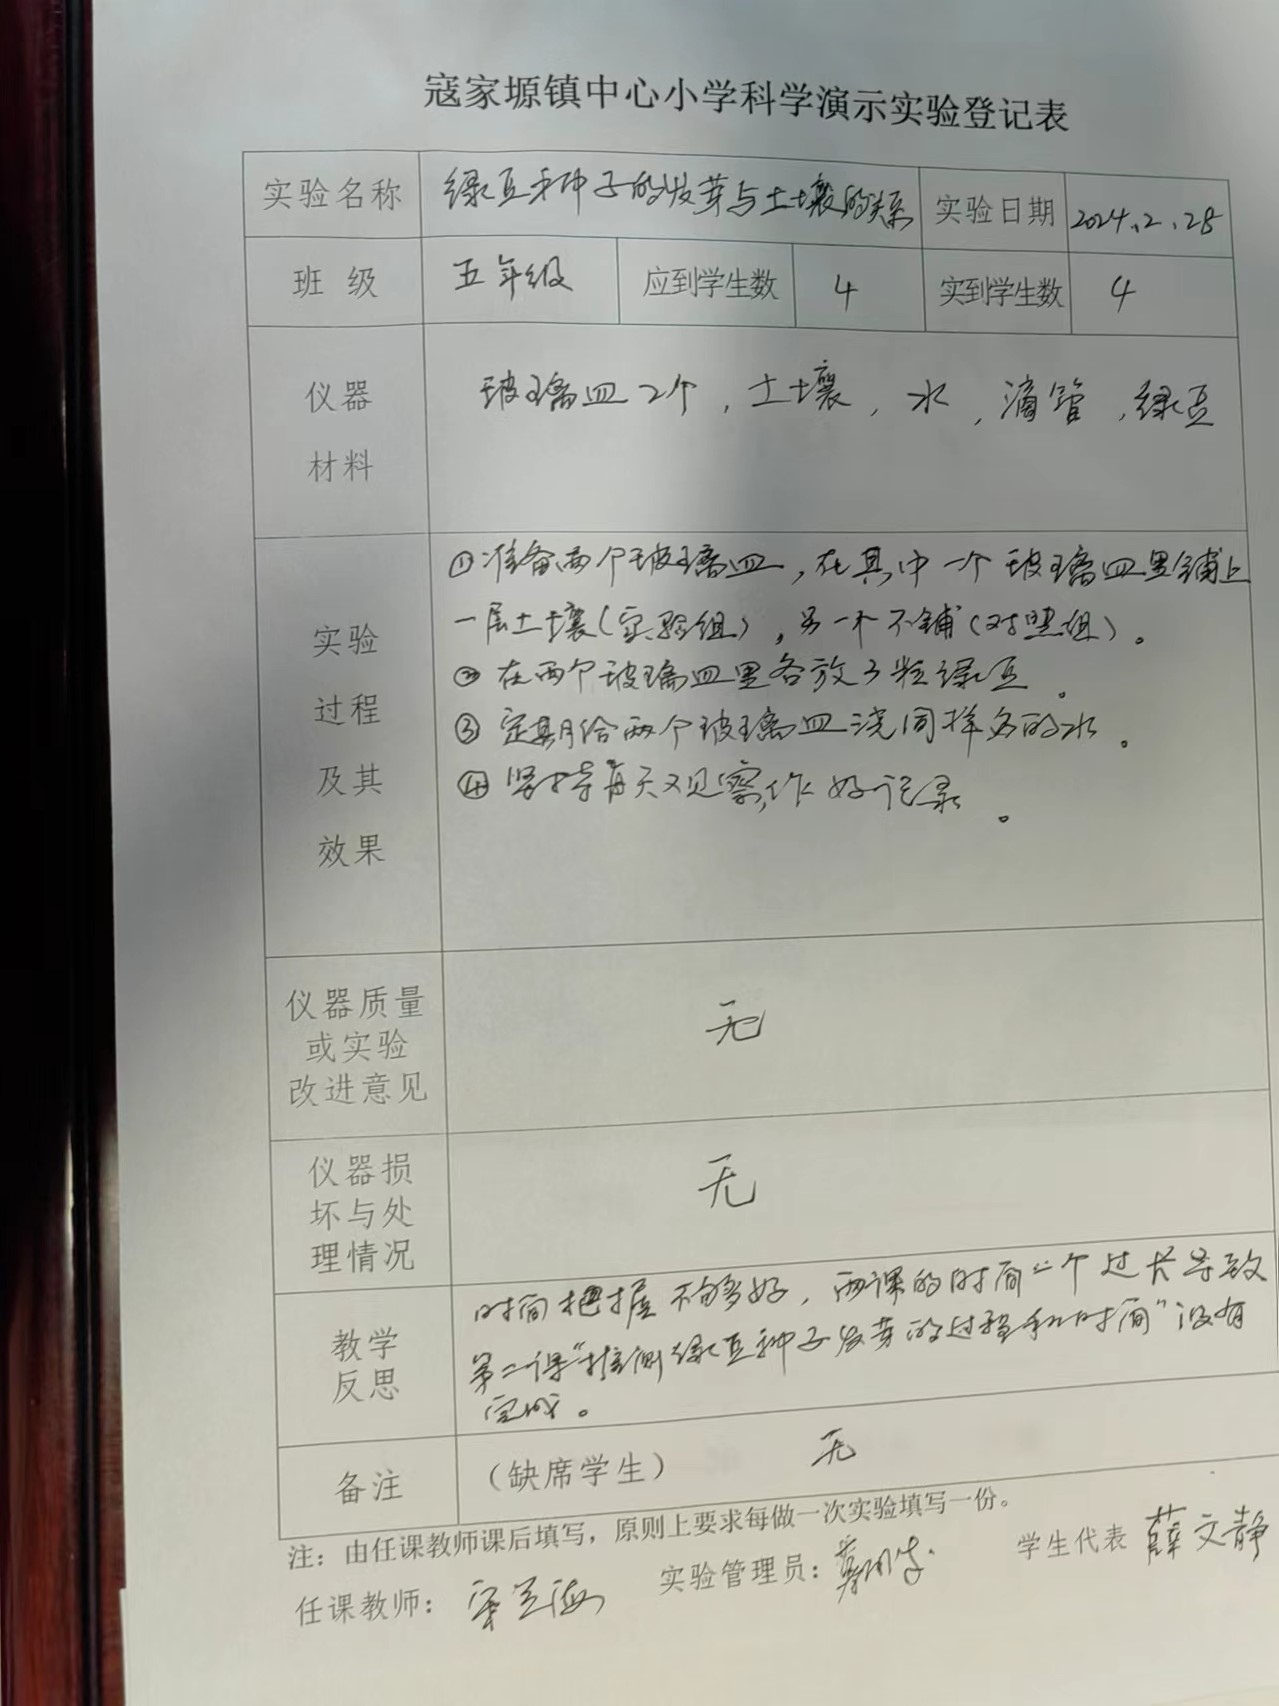 寇家塬镇中心小学科学演示实验登记表
实验名称 绿豆种子的发芽与土壤的关系 实验日期 2024.2.28
班 级 五年级 应到学生数 4 实到学生数 4
仪器
材料
玻璃皿2个，土壤，水，滴管，绿豆
实验
过程
及其
效果
①准备两个玻璃皿，在其中一个玻璃皿里铺上
一层土壤（实验组），另一个不铺（对照组）。
②在两个玻璃皿里各放3粒绿豆。
③定期给两个玻璃皿浇同样多的水。
④坚持每天观察，作好记录。
仪器质量
或实验
改进意见
无
仪器损
坏与处
理情况
无
教学
反思
时间把握不够好，两课的时间 个过长导致
第二课“推测绿豆种子发芽的过程和时间”没有
完成。
备注 （缺席学生） 无
注：由任课教师课后填写，原则上要求每做一次实验填写一份。
任课教师： 实验管理员： 学生代表 薛文静